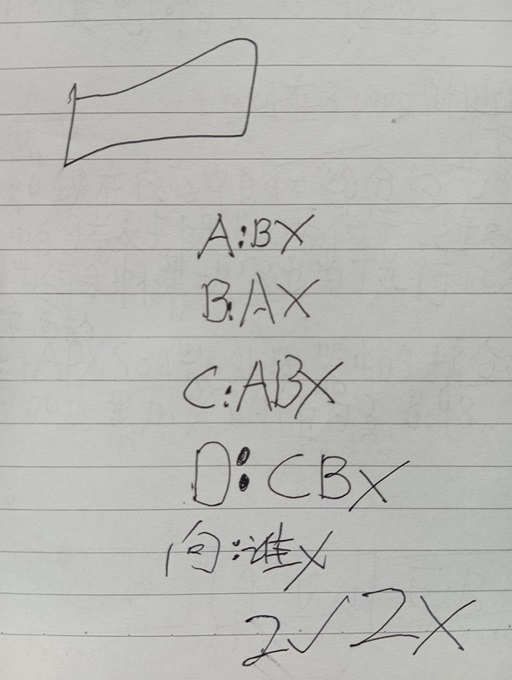 A:BX
B:AX
C:ABX
D:CBX
问:谁X
2✓2X